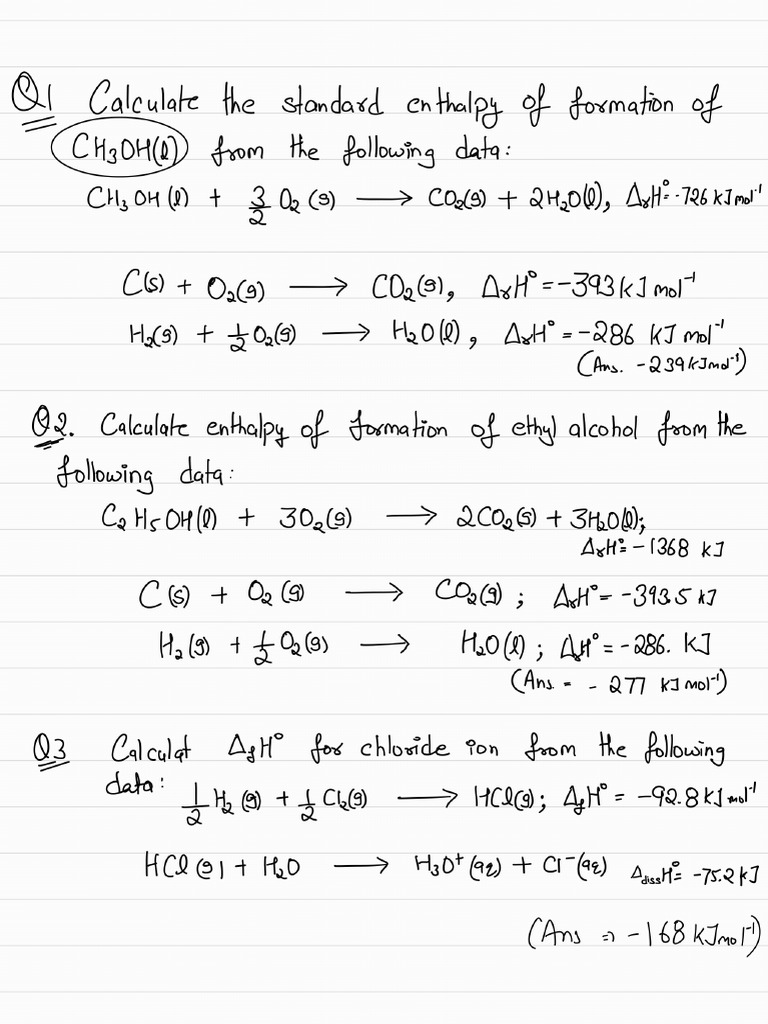 Q1 Calculate the standard enthalpy of formation of
CH₃OH(l) from the following data:
CH₃OH(l) + 3/2 O₂(g) ⟶ CO₂(g) + 2H₂O(l), ΔᵣH° = -726 kJ mol⁻¹
C(s) + O₂(g) ⟶ CO₂(g), ΔᵣH° = -393 kJ mol⁻¹
H₂(g) + 1/2 O₂(g) ⟶ H₂O(l), ΔᵣH° = -286 kJ mol⁻¹
(Ans. -239 kJ mol⁻¹)
Q2. Calculate enthalpy of formation of ethyl alcohol from the
following data:
C₂H₅OH(l) + 3O₂(g) ⟶ 2CO₂(g) + 3H₂O(l);
ΔᵣH° = -1368 kJ
C(s) + O₂(g) ⟶ CO₂(g); ΔᵣH° = -393.5 kJ
H₂(g) + 1/2 O₂(g) ⟶ H₂O(l); ΔᵣH° = -286. kJ
(Ans. = -277 kJ mol⁻¹)
Q3 Calculat ΔfH° for chloride ion from the following
data:
1/2 H₂(g) + 1/2 Cl₂(g) ⟶ HCl(g); ΔfH° = -92.8 kJ mol⁻¹
HCl(g) + H₂O ⟶ H₃O⁺(aq) + Cl⁻(aq) ΔdissH° = -75.2 kJ
(Ans ⇒ -168 kJ mol⁻¹)